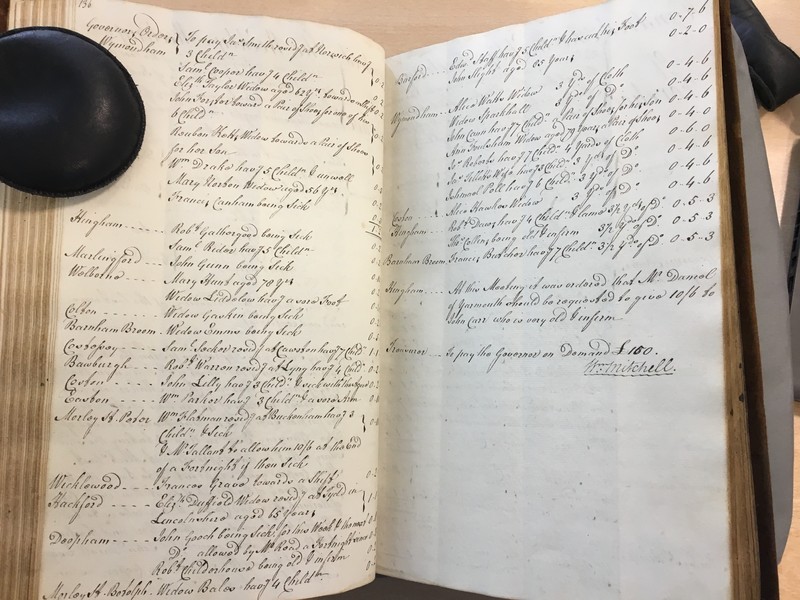 136
Governors Orders
Wymondham To pay Jas. Smith resid.g at Norwich hav.g
3 Child.n
Sam. Cooper hav.g 4 Child.n
Eliz.th Taylor Widow aged 62 y.rs toward
John toward a Pair of Shoes for one of his
6 Child.n
Reuben Widow towards a Pair of Shoes
for her Son
Wm. Drake hav.g 5 Child.n & unwell
Mary Horson Widow aged 56 y.rs
Frances Canham being Sick
Hingham Rob.t Gathergood being Sick
Sam.l Rudar hav.g 5 Child.n
Marlingford John Gunn being Sick
Welborne Mary Hunt aged 70 y.rs
Widow hav.g a sore Foot
Colton Widow Gaskin being Sick
Barnham Broom Widow Emms being Sick
Costessey Sam.l Secker resid.g at Cawston hav.g 7 Child.
Bawburgh Rob.t Warren resid.g at Lyng hav.g 4 Child.
Coston John Lilly hav.g 3 Child.n & sick
Easton Wm. Parker hav.g 3 Child.n & a sore Arm
Morley St. Peter Wm. Flatman resid.g at Buckenham hav.g 3
Child.n & Sick
& Mr. Tallant to allow him 10/6 at the End
of a Fortnight if then Sick
Wicklewood Frances Grave towards a Shift
Hackford Eliz.th Duffield Widow resid.g at in
Lincolnshire aged 65 Years
Deopham John Gooch being Sick, for this Week & the next
D.o allowed by Mr. Read a Fortnight since
Rob.t Childerhouse being old & infirm
Morley St. Botolph Widow Bales hav.g 4 Child.n
Bawford Edw.d Staff hav.g 5 Child.n & Foot 0-7-6
John Slight aged 85 Years 0-2-0
Wymondham Alice Watts Widow 3 y.ds of Cloth 0-4-6
Widow Sparkhall 3 y.ds of D.o 0-4-6
John Cann hav.g 7 Child.n a Pair of Shoes for his Son 0-4-6
Ann Widow aged 79 Years a Pair of Shoes 0-4-0
Jn. Roberts hav.g 7 Child.n 4 Yards of Cloth 0-6-0
Jas. Wife hav.g 3 Child.n 3 y.ds of D.o 0-4-6
Poll hav.g 6 Child.n 3 y.ds of D.o 0-4-6
Alice Hawkes Widow 3 y.ds of D.o 0-4-6
Coston Rob.t Daws hav.g 4 Child.n & lame 3½ y.ds of D.o 0-5-3
Hingham Tho.s Collins being old & infirm 3½ y.ds of D.o 0-5-3
Barnham Broom Francis Butcher hav.g 7 Child.n 3½ y.ds of D.o 0-5-3
Hingham At this Meeting it was ordered that Mr. Daniel
of Yarmouth should be requested to give 10/6 to
John Carr who is very old & infirm
Treasurer to pay the Governor on Demand £150.
Wm. Mitchell.